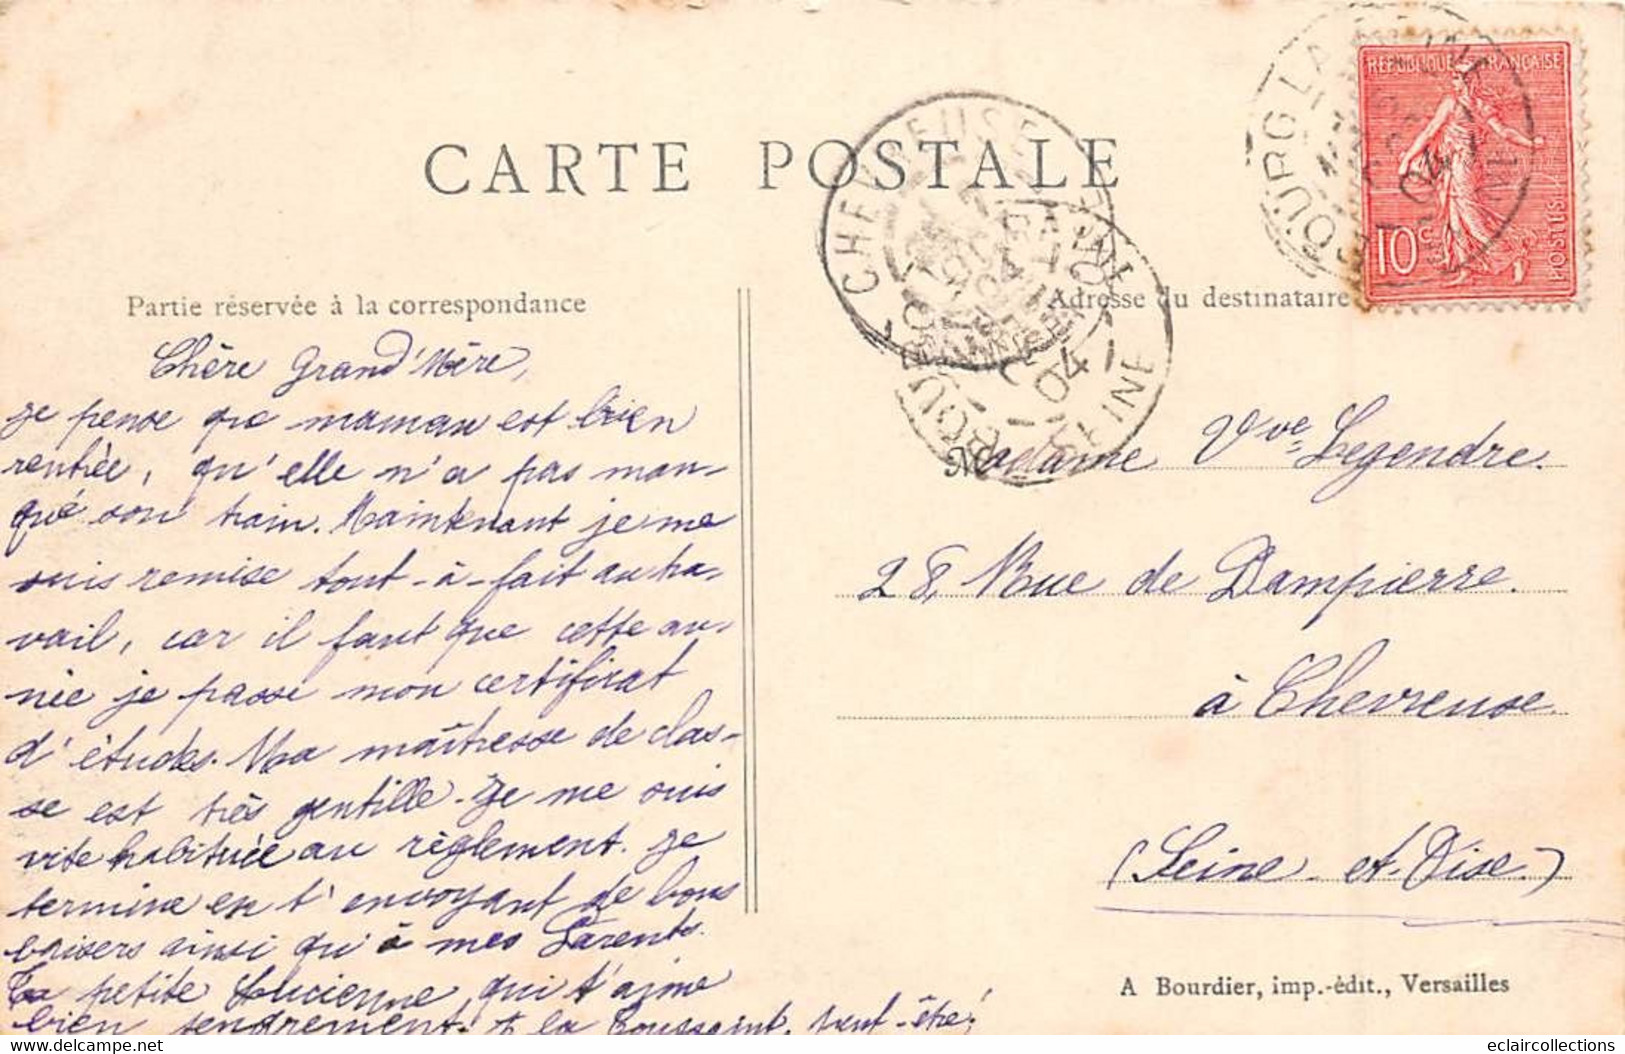 CARTE POSTALE
RÉPUBLIQUE FRANÇAISE
10c
POSTES
CHEVREUSE
04
BOURG LA REINE
SEINE
04
Partie réservée à la correspondance
Adresse du destinataire
Chère Grand'Mère,
Je pense que maman est bien
rentrée, qu'elle n'a pas man-
qué son train. Maintenant je me
suis remise tout-à-fait au tra-
vail, car il faut que cette an-
née je passe mon certificat
d'études. Ma maîtresse de clas-
se est très gentille. Je me suis
vite habituée au règlement. Je
termine en t'envoyant de bons
baisers ainsi qu'à mes Parents.
Ta petite Lucienne, qui t'aime
bien tendrement. A la Toussaint, peut-être!
Madame Vve Legendre.
28, Rue de Dampierre.
à Chevreuse
(Seine-et-Oise.)
A Bourdier, imp.-édit., Versailles
© eclaircollections.fr
eclaircollections